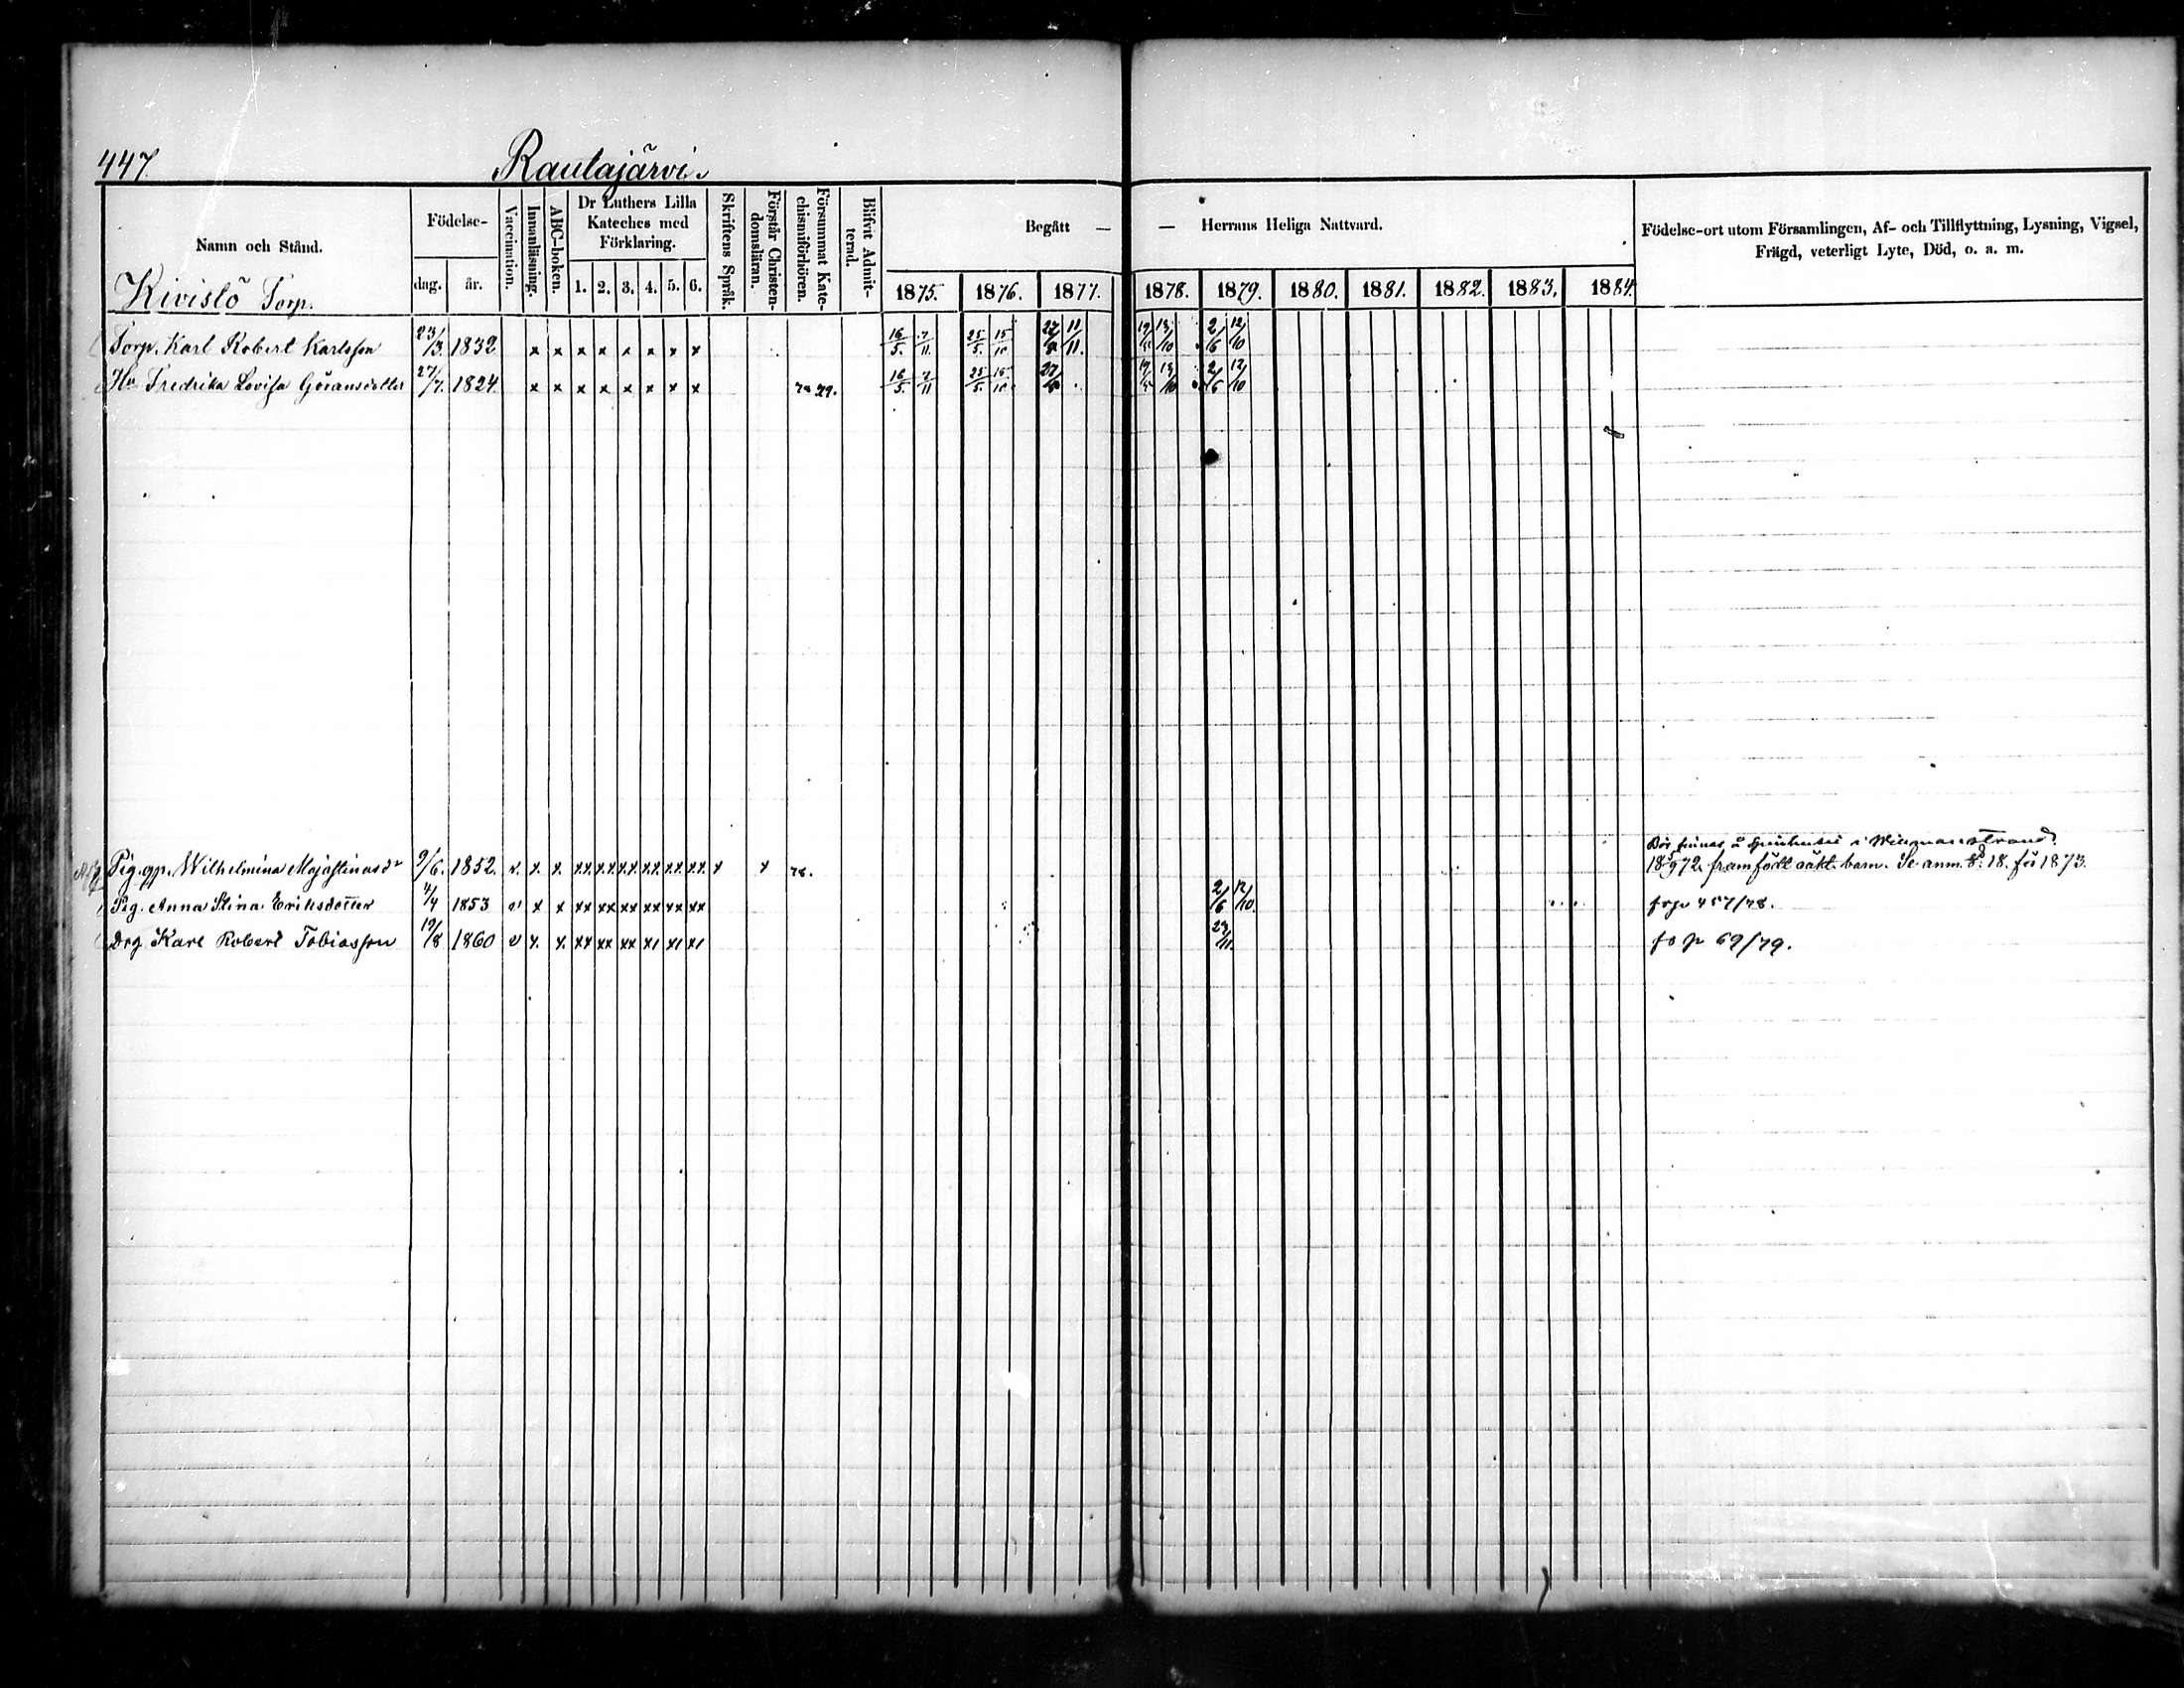 447.
Rautajärvi.
Namn och Stånd.
Födelse-
dag. år.
Vaccination.
Innanläsning.
ABC-boken.
Dr Luthers Lilla Kateches med Förklaring.
1. 2. 3. 4. 5. 6.
Skriftens Språk.
Förstår Christen-domsläran.
Försummat Kate-chismiförhören.
Blifvit Admit-terad.
Begått — — Herrans Heliga Nattvard.
1875. 1876. 1877. 1878. 1879. 1880. 1881. 1882. 1883. 1884.
Födelse-ort utom Församlingen, Af- och Tillflyttning, Lysning, Vigsel,
Frägd, veterligt Lyte, Död, o. a. m.
Kivistö Torp.
Torp. Karl Robert Karlsson 23/3. 1832. x x x x x x x x 16/5. 7/11 25/5. 15/10 11/11. 2/6 12/10
Hu Fredrika Lovisa Göransdotter 27/7. 1824. x x x x x x x x 16/5. 7/11 25/5. 15/10 2/6 12/10
i
Pig. Wilhelmina Majastinasdr 9/6. 1852. v. x. x. xx xx xx xx xx xx x x 78. 1872 framfödt oäkt. barn. Se anm. 18. för 1873.
Pig. Anna Stina Eriksdotter 4/4 1853 v x x xx xx xx xx xx xx 2/6 12/10. 457/78.
Drg Karl Robert Tobiasson 19/8 1860 v x. x. xx xx xx x1 x1 x1 69/79.